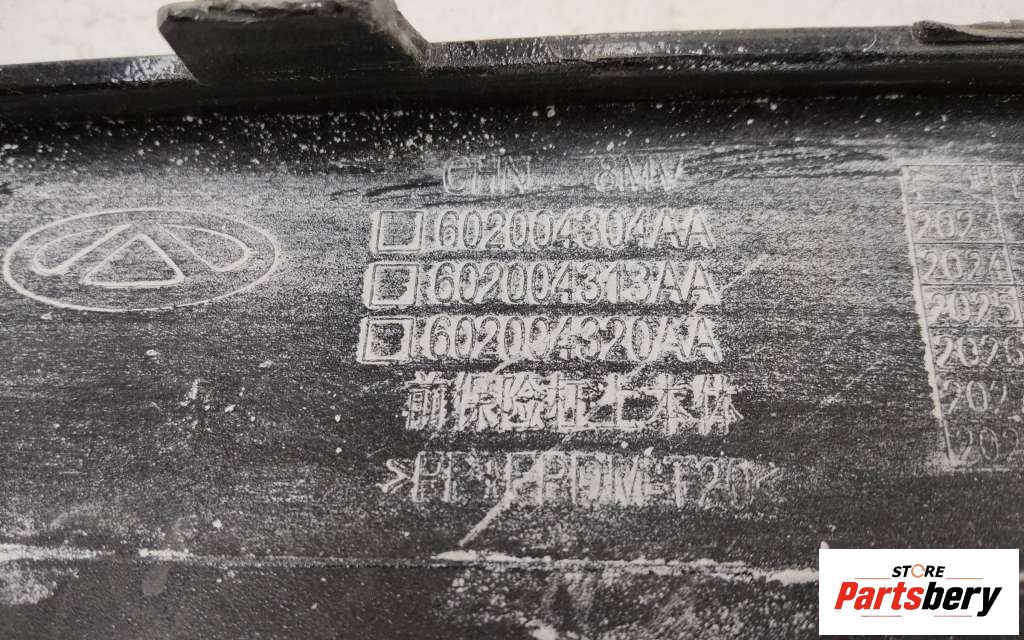 CHN 8MV
602004304AA
602004313AA
602004320AA
前保险杠上本体
2023
2024
2025
2026
STORE
Partsbery